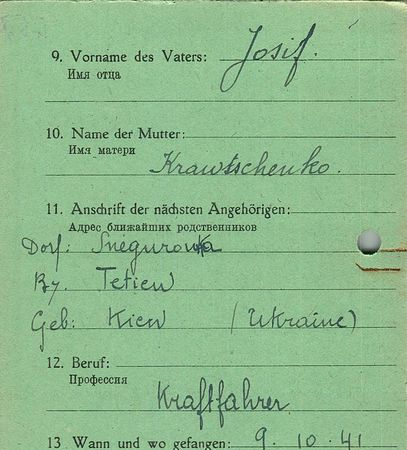 9. Vorname des Vaters: Josif.
Имя отца
10. Name der Mutter:
Имя матери
Krawtschenko.
11. Anschrift der nächsten Angehörigen:
Адрес ближайших родственников
Dorf: Snegurowka
By. Tetiew
Geb: Kiew (Ukraine)
12. Beruf:
Профессия
Kraftfahrer
13 Wann und wo gefangen: 9. 10. 41